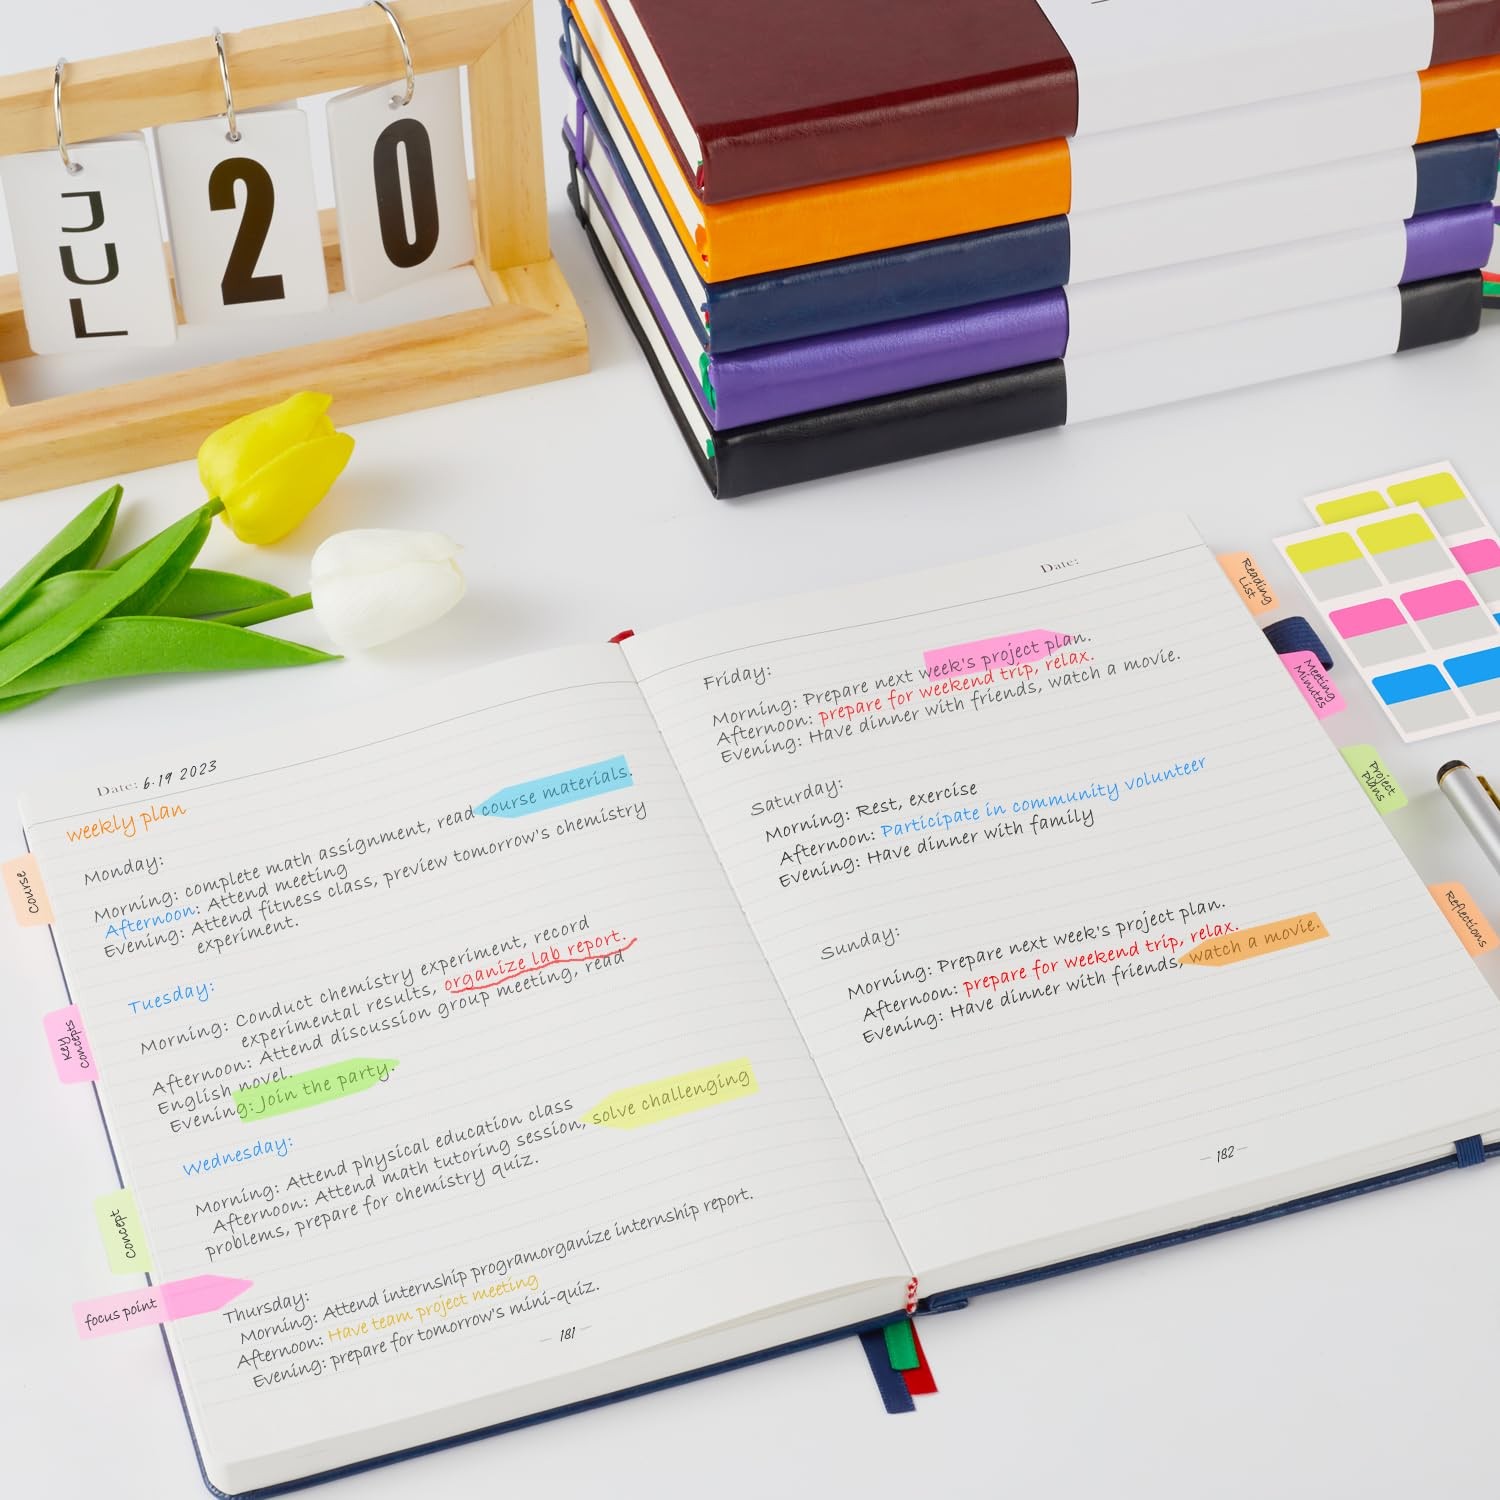 JUL
20
Date: 6.19 2023
weekly plan
Monday:
Morning: complete math assignment, read course materials.
Afternoon: Attend meeting
Evening: Attend fitness class, preview tomorrow's chemistry
experiment.
Tuesday:
Morning: Conduct chemistry experiment, record
experimental results, organize lab report.
Afternoon: Attend discussion group meeting, read
English novel.
Evening: Join the party.
Wednesday:
Morning: Attend physical education class
Afternoon: Attend math tutoring session, solve challenging
problems, prepare for chemistry quiz.
Thursday:
Morning: Attend internship programorganize internship report.
Afternoon: Have team project meeting
Evening: prepare for tomorrow's mini-quiz.
— 181 —
Course
Key
Concepts
Concept
focus point
Date:
Friday:
Morning: Prepare next week's project plan.
Afternoon: prepare for weekend trip, relax.
Evening: Have dinner with friends, watch a movie.
Saturday:
Morning: Rest, exercise
Afternoon: Participate in community volunteer
Evening: Have dinner with family
Sunday:
Morning: Prepare next week's project plan.
Afternoon: prepare for weekend trip, relax.
Evening: Have dinner with friends, watch a movie.
— 182 —
Reading
List
Meeting
Minutes
Project
Plans
Reflections